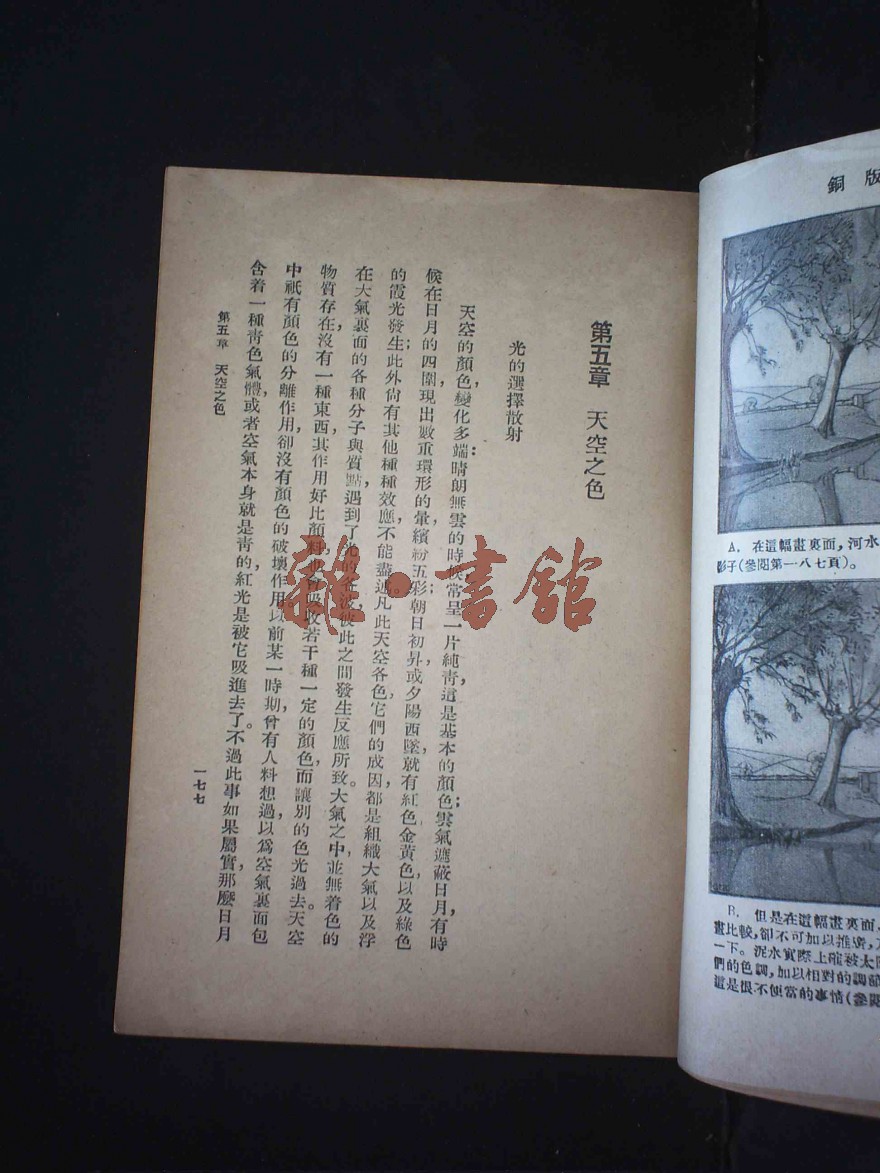 第五章　天空之色
光的選擇散射
天空的顏色，變化多端；晴朗無雲的時候，常呈一片純靑，這是基本的顏色；雲氣遮蔽日月，有時
候在日月的四圍，現出數重環形的暈，繽紛五彩；朝日初昇，或夕陽西墜，就有紅色金黃色，以及綠色
的霞光發生；此外尙有其他種種效應，不能盡述。凡此天空各色，它們的成因，都是組織大氣以及浮
在大氣裏面的各種分子與質點，遇到了光的各波，彼此之間發生反應所致。大氣之中，並無着色的
物質存在，沒有一種東西，其作用好比顏料，也會吸收若干種一定的顏色，而讓別的色光過去。天空
中祇有顏色的分離作用，卻沒有顏色的破壞作用。以前某一時期，曾有人料想過，以爲空氣裏面包
含着一種靑色氣體，或者空氣本身就是靑的，紅光是被它吸進去了。不過此事如果屬實，那麼日月
第五章　天空之色
一七七
雜·書館
銅版
A. 在這幅畫裏面，河水
影子(參閱第一八七頁)。
B. 但是在這幅畫裏面，
畫比較，卻不可加以推磨，
一下。泥水實際上能被太
們的色調，加以相對的調節
這是很不便當的事情(參閱